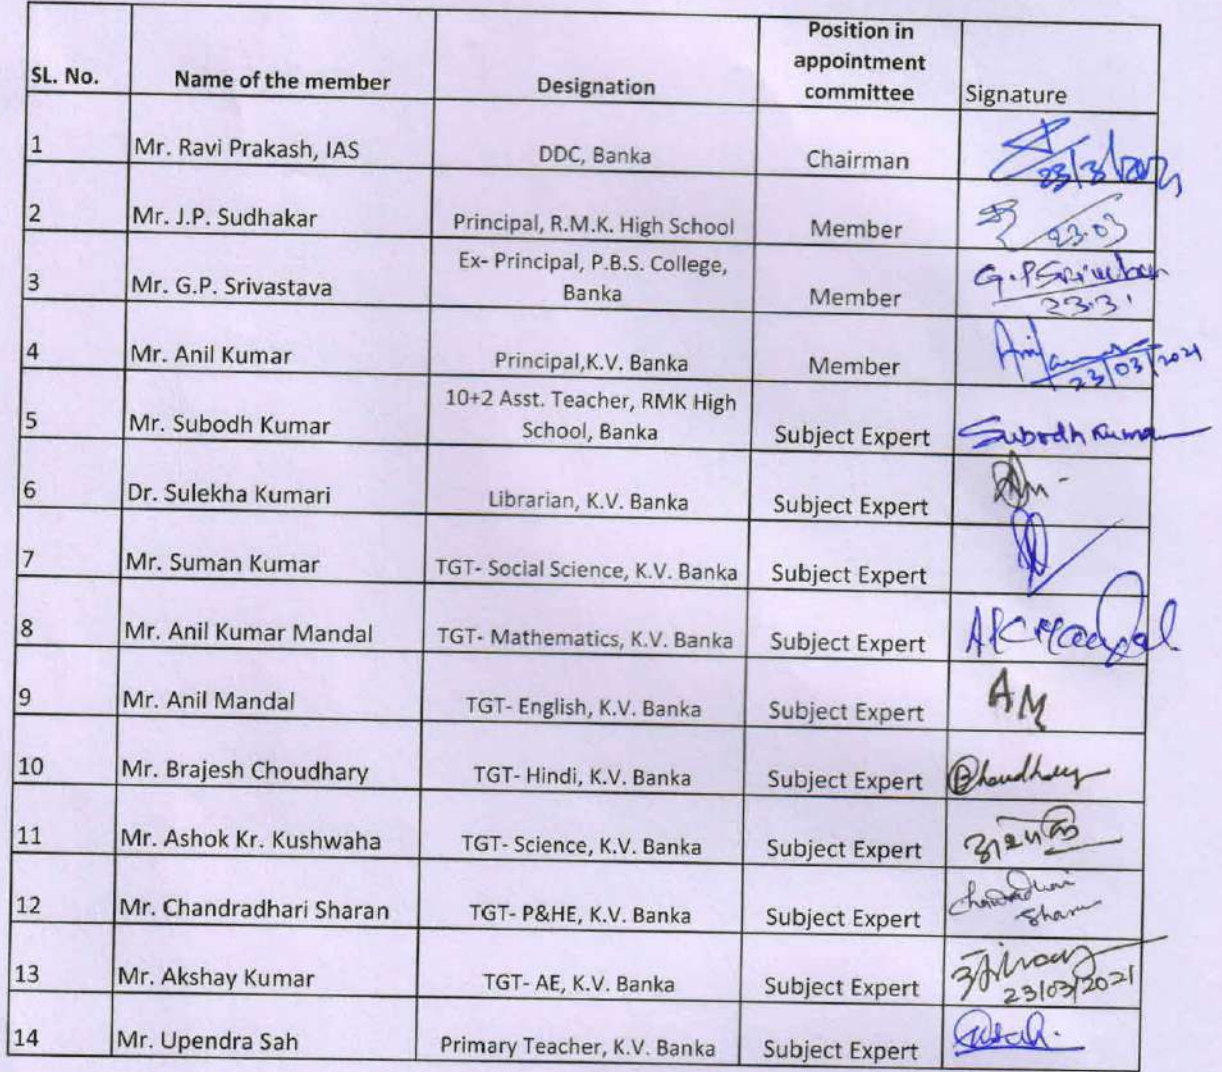 SL. No. Name of the member Designation Position in appointment committee Signature
1 Mr. Ravi Prakash, IAS DDC, Banka Chairman 23/3/2021
2 Mr. J.P. Sudhakar Principal, R.M.K. High School Member 23.03
3 Mr. G.P. Srivastava Ex- Principal, P.B.S. College, Banka Member G.P Srivastava 23.3.
4 Mr. Anil Kumar Principal,K.V. Banka Member 23/03/2021
5 Mr. Subodh Kumar 10+2 Asst. Teacher, RMK High School, Banka Subject Expert Subodh Kumar
6 Dr. Sulekha Kumari Librarian, K.V. Banka Subject Expert
7 Mr. Suman Kumar TGT- Social Science, K.V. Banka Subject Expert
8 Mr. Anil Kumar Mandal TGT- Mathematics, K.V. Banka Subject Expert AK Mandal
9 Mr. Anil Mandal TGT- English, K.V. Banka Subject Expert AM
10 Mr. Brajesh Choudhary TGT- Hindi, K.V. Banka Subject Expert BChoudhary
11 Mr. Ashok Kr. Kushwaha TGT- Science, K.V. Banka Subject Expert
12 Mr. Chandradhari Sharan TGT- P&HE, K.V. Banka Subject Expert Chandradhari Sharan
13 Mr. Akshay Kumar TGT- AE, K.V. Banka Subject Expert 23/03/2021
14 Mr. Upendra Sah Primary Teacher, K.V. Banka Subject Expert